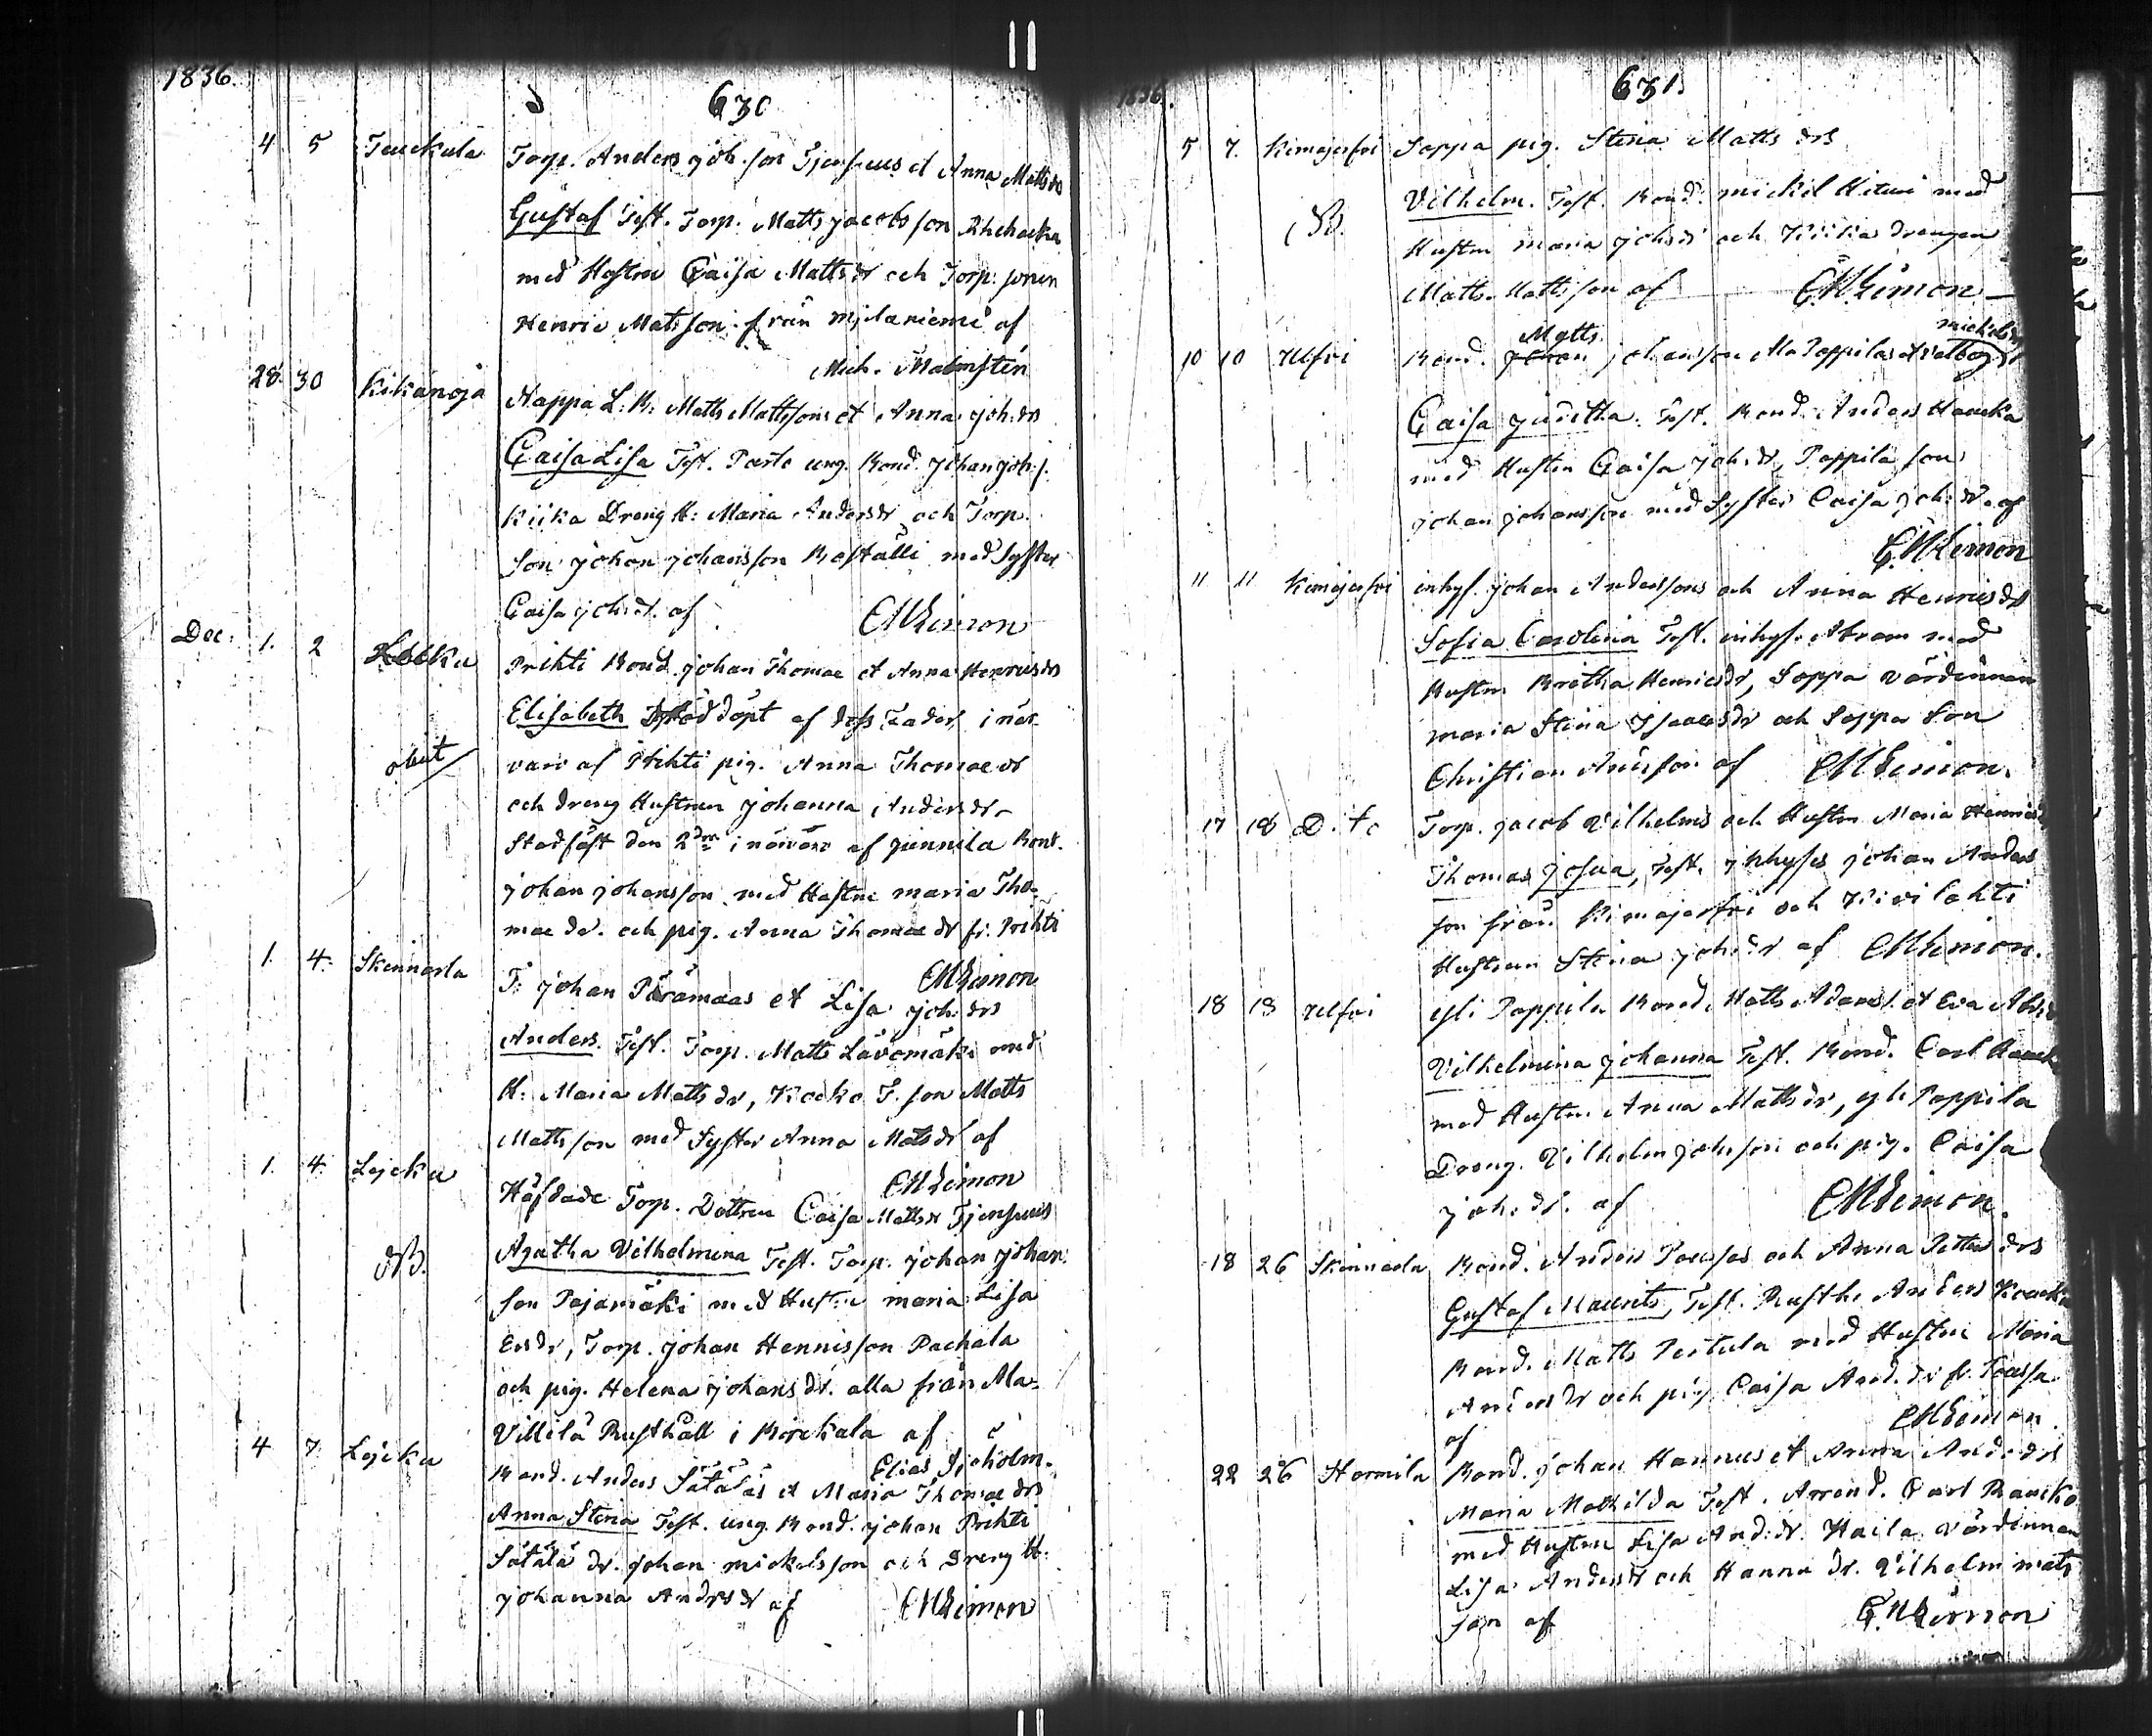 1836.
630
4 5 Tauckala Torp. Anders Joh:son Tjensuus et Anna Matts dr
Gustaf Test. Torp. Matts Jacobsson
med Hustru Caisa Mattsdr och Torp. sonen
Henric Matsson från Mjelaniemi af
Mich. Malmstén
28. 30 Kikanoja Nappa L: B: Matts Mattssons et Anna Joh:dr
Caisa Lisa Test. Parto ung. Bond. Johan Joh:s.
Kiika Dreng H: Maria Andersdr och Torp.
Son Johan Johansson Roställi med Syster
Caisa Joh:dr. af CMLimon
Dec: 1. 2 Kocku Prihti Bond. Johan Thomae et Anna Henricsdr
Elisabeth Nöddöpt af dess Fader, i när-
obiit varo af Prihti pig. Anna Thomae dr
och dreng Hustrun Johanna Andersdr-
Stadfäst den 2dra i närvaro af Junnila Bond.
Johan Johansson med Hustru Maria Tho-
mae dr. och pig. Anna Thomae dr fr. Prihti
CMLimon
1. 4. Skinnarla T: Johan Päramaas et Lisa Joh:drs
Anders. Test. Torp. Matts Lävomäki med
H: Maria Matts dr, Kocko T. son Matts
Mattsson med Syster Anna Matsdr af
CMLimon
1. 4. Lojcku Häfdade Torp. Dottren Caisa Mattsdr Tjensuus
NB. Agatha Vilhelmina Test. Torp. Johan Johan-
son Pajamäki med Hustru Maria Lisa
Ersdr, Torp. Johan Hennisson Pachala
och pig. Helena Johansdr. alla från Ala-
Villilä Rusthåll i Birckala af
Elias Sjöholm.
4 7 Lojcku Bond. Anders Sätäläs et Maria Thomae drs
Anna Stina Test. ung. Bond. Johan Prihti
Sätälä dr. Johan Mickelsson och dreng H.
Johanna Andrsdr af CMLimon
1836.
631.
5 7. Kimajerfvi Soppa pig. Stina Matts drs
NB. Vilhelm. Test. Bond. Mickel Hitui med
Hustru Maria Johsdr och Kiikas drengen
Matts Mattsson af CMLimon
10 10 Ulfvi Bond. Matts Johansson Ala Poppilas et Valborg Mickelsdr
Caisa Juditha. Test. Bond. Anders Haucka
med Hustru Caisa Joh:dr, Poppila son
Johan Johansson med Syster Caisa Joh:dr. af
CMLimon
11 11 Kimajerfvi inhys. Johan Anderssons och Anna Henricsdr
Sofia Carolina Test. inhys. Abram med
Hustru Britha Henricsdr, Soppa Värdinnan
Maria Stina Isaacsdr och Soppa Son
Christian Antsson af CMLimon.
17 18 D:to Torp. Jacob Vilhelms och Hustru Maria Henrics
Thomas Josua, Test. Inhyses Johan Anders
son från Kimajerfvi och Kivilahti
Hustrun Stina Joh:dr af CMLimon.
18 18 Ulfvi Yli Poppila Bond. Matts Adams. et Eva Abr:
Vilhelmina Johanna Test. Bond. Carl Hauck
med Hustru Anna Mattsdr, Yli Poppila
Dreng. Vilhelm Johsson och pig. Caisa
Joh:dr. af CMLimon.
18 26 Skinnarla Bond. Anders Poussas och Anna Petters drs
Gustaf Maurits, Test. Rusth. Anders Koucka
Bond. Matts Pertula med Hustru Maria
Andersdr och pig Caisa And. dr fr. Poussa
af CMLimon.
22 26 Hormila Bond. Johan Hannus et Anna And:drs
Maria Mathilda Test. Arrend. Carl Raucko
med Hustru Lisa And:dr. Haila Värdinnan
Lisa Andersdr och Hannu dr. Vilhelm Mats
son af CMLimon